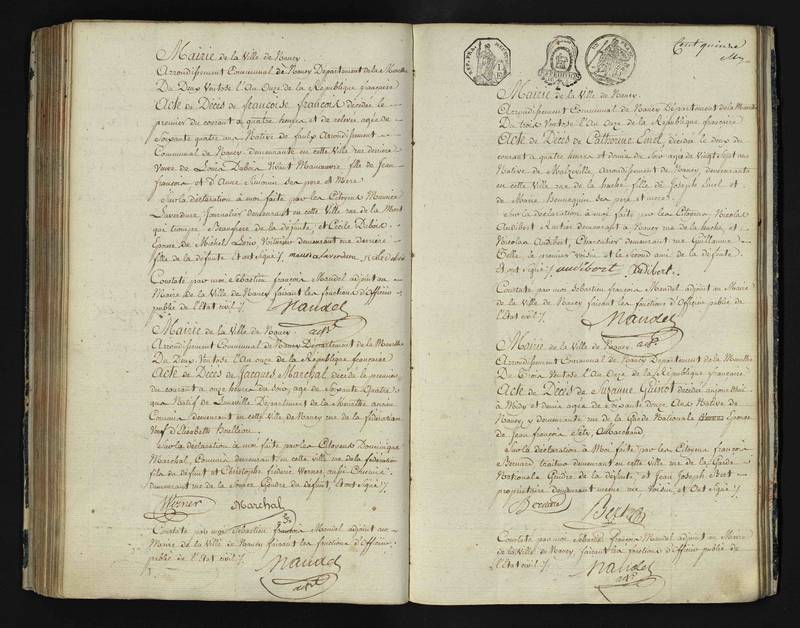 Mairie de la Ville de Nancy.
Arrondissement Communal de Nancy Département de la Meurthe
Du Deux Ventose l'An Onze de la République française
Acte de Décès de françoise françois décédée le
premier du courant à quatre heures et de relevée agée de
Soixante quatre ans Native de faulx Arrondissement
Communal de Nancy, demeurante en cette Ville rue derrière
Veuve de Louis Dubois Vivant Manœuvre, fille de Jean
françois et d'Anne Simonin ses père et Mere
Sur la déclaration à moi faite par les Citoyens Meunier
Laverdune, Journalier demeurant en cette Ville rue de la
qui trompe, Beaufrere de la défunte, et Cécile Dubois
Epouse de Michel Louis Voiturier demeurant rue derrière
fille de la défunte. Et ont signé /.
Constaté par moi Sébastien françois Mandel adjoint au
Maire de la Ville de Nancy faisant les fonctions d'Officier
public de l'Etat civil /. Mandel
adjt
Mairie de la Ville de Nancy.
Arrondissement Communal de Nancy Département de la Meurthe
Du Deux Ventose l'An onze de la République française
Acte de Décès de Jacques Marchal, décédé le premier
du courant à onze heures du soir, agé de Soixante Quatre
ans Natif de Luneville Département de la Meurthe ancien
Commis, demeurant en cette Ville de Nancy rue de la fédération
Veuf d'Elisabeth Bouillon
Sur la déclaration à moi faite par les Citoyens Dominique
Marchal, Commis, demeurant en cette Ville rue de la fédération
fils du défunt et Christophe frideric Werner, aussi Commis
demeurant rue de la Source, Gendre du défunt, Et ont Signé /.
Werner Marchal
Constaté par moi Sébastien françois Mandel adjoint au
Maire de la Ville de Nancy faisant les fonctions d'Officier
public de l'Etat civil /. Mandel
adjt
Cent quinze
Mairie de la Ville de Nancy.
Arrondissement Communal de Nancy Département de la Meurthe
Du trois Ventose l'An Onze de la République française
Acte de Décès de Catherine Enel, décédée le deux du
courant à quatre heures et demie du Soir agée de Vingt Sept ans
Native de Malzeville, arrondissement de Nancy, demeurante
en cette Ville rue de la hache, fille de Joseph Enel et
de Marie Hennequin ses père et mere
Sur la déclaration à moi faite par les Citoyens Nicolas
Audibert Rentier demeurant à Nancy rue de la hache, et
Nicolas Audibert, Charcutier demeurant rue Guillaume
Telle, le premier voisin, et le second ami de la défunte.
Et ont signé /. audibert. Audibert.
Constaté par moi Sébastien françois Mandel, adjoint au Maire
de la Ville de Nancy faisant les fonctions d'Officier public de
l'Etat civil /. Mandel
adjt
Mairie de la Ville de Nancy.
Arrondissement Communal de Nancy Département de la Meurthe
Du Trois Ventose l'An Onze de la République française
Acte de Décès de Suzanne Guinot décédée aujourd'hui
à Midy et demie agée de Soixante douze ans Native de
Nancy, y demeurante rue de la Garde Nationale Epouse
de Jean françois Marchand
Sur la déclaration à Moi faite par les Citoyens françois
Bernard traiteur demeurant en cette Ville rue de la Garde
Nationale Gendre de la défunte, et Jean Joseph
propriétaire demeurant même rue Voisin, et Ont Signé /.
Constaté par moi Sébastien françois Mandel adjoint au Maire
de la Ville de Nancy, faisant les fonctions d'Officier public de
l'Etat civil /. Mandel
adjt